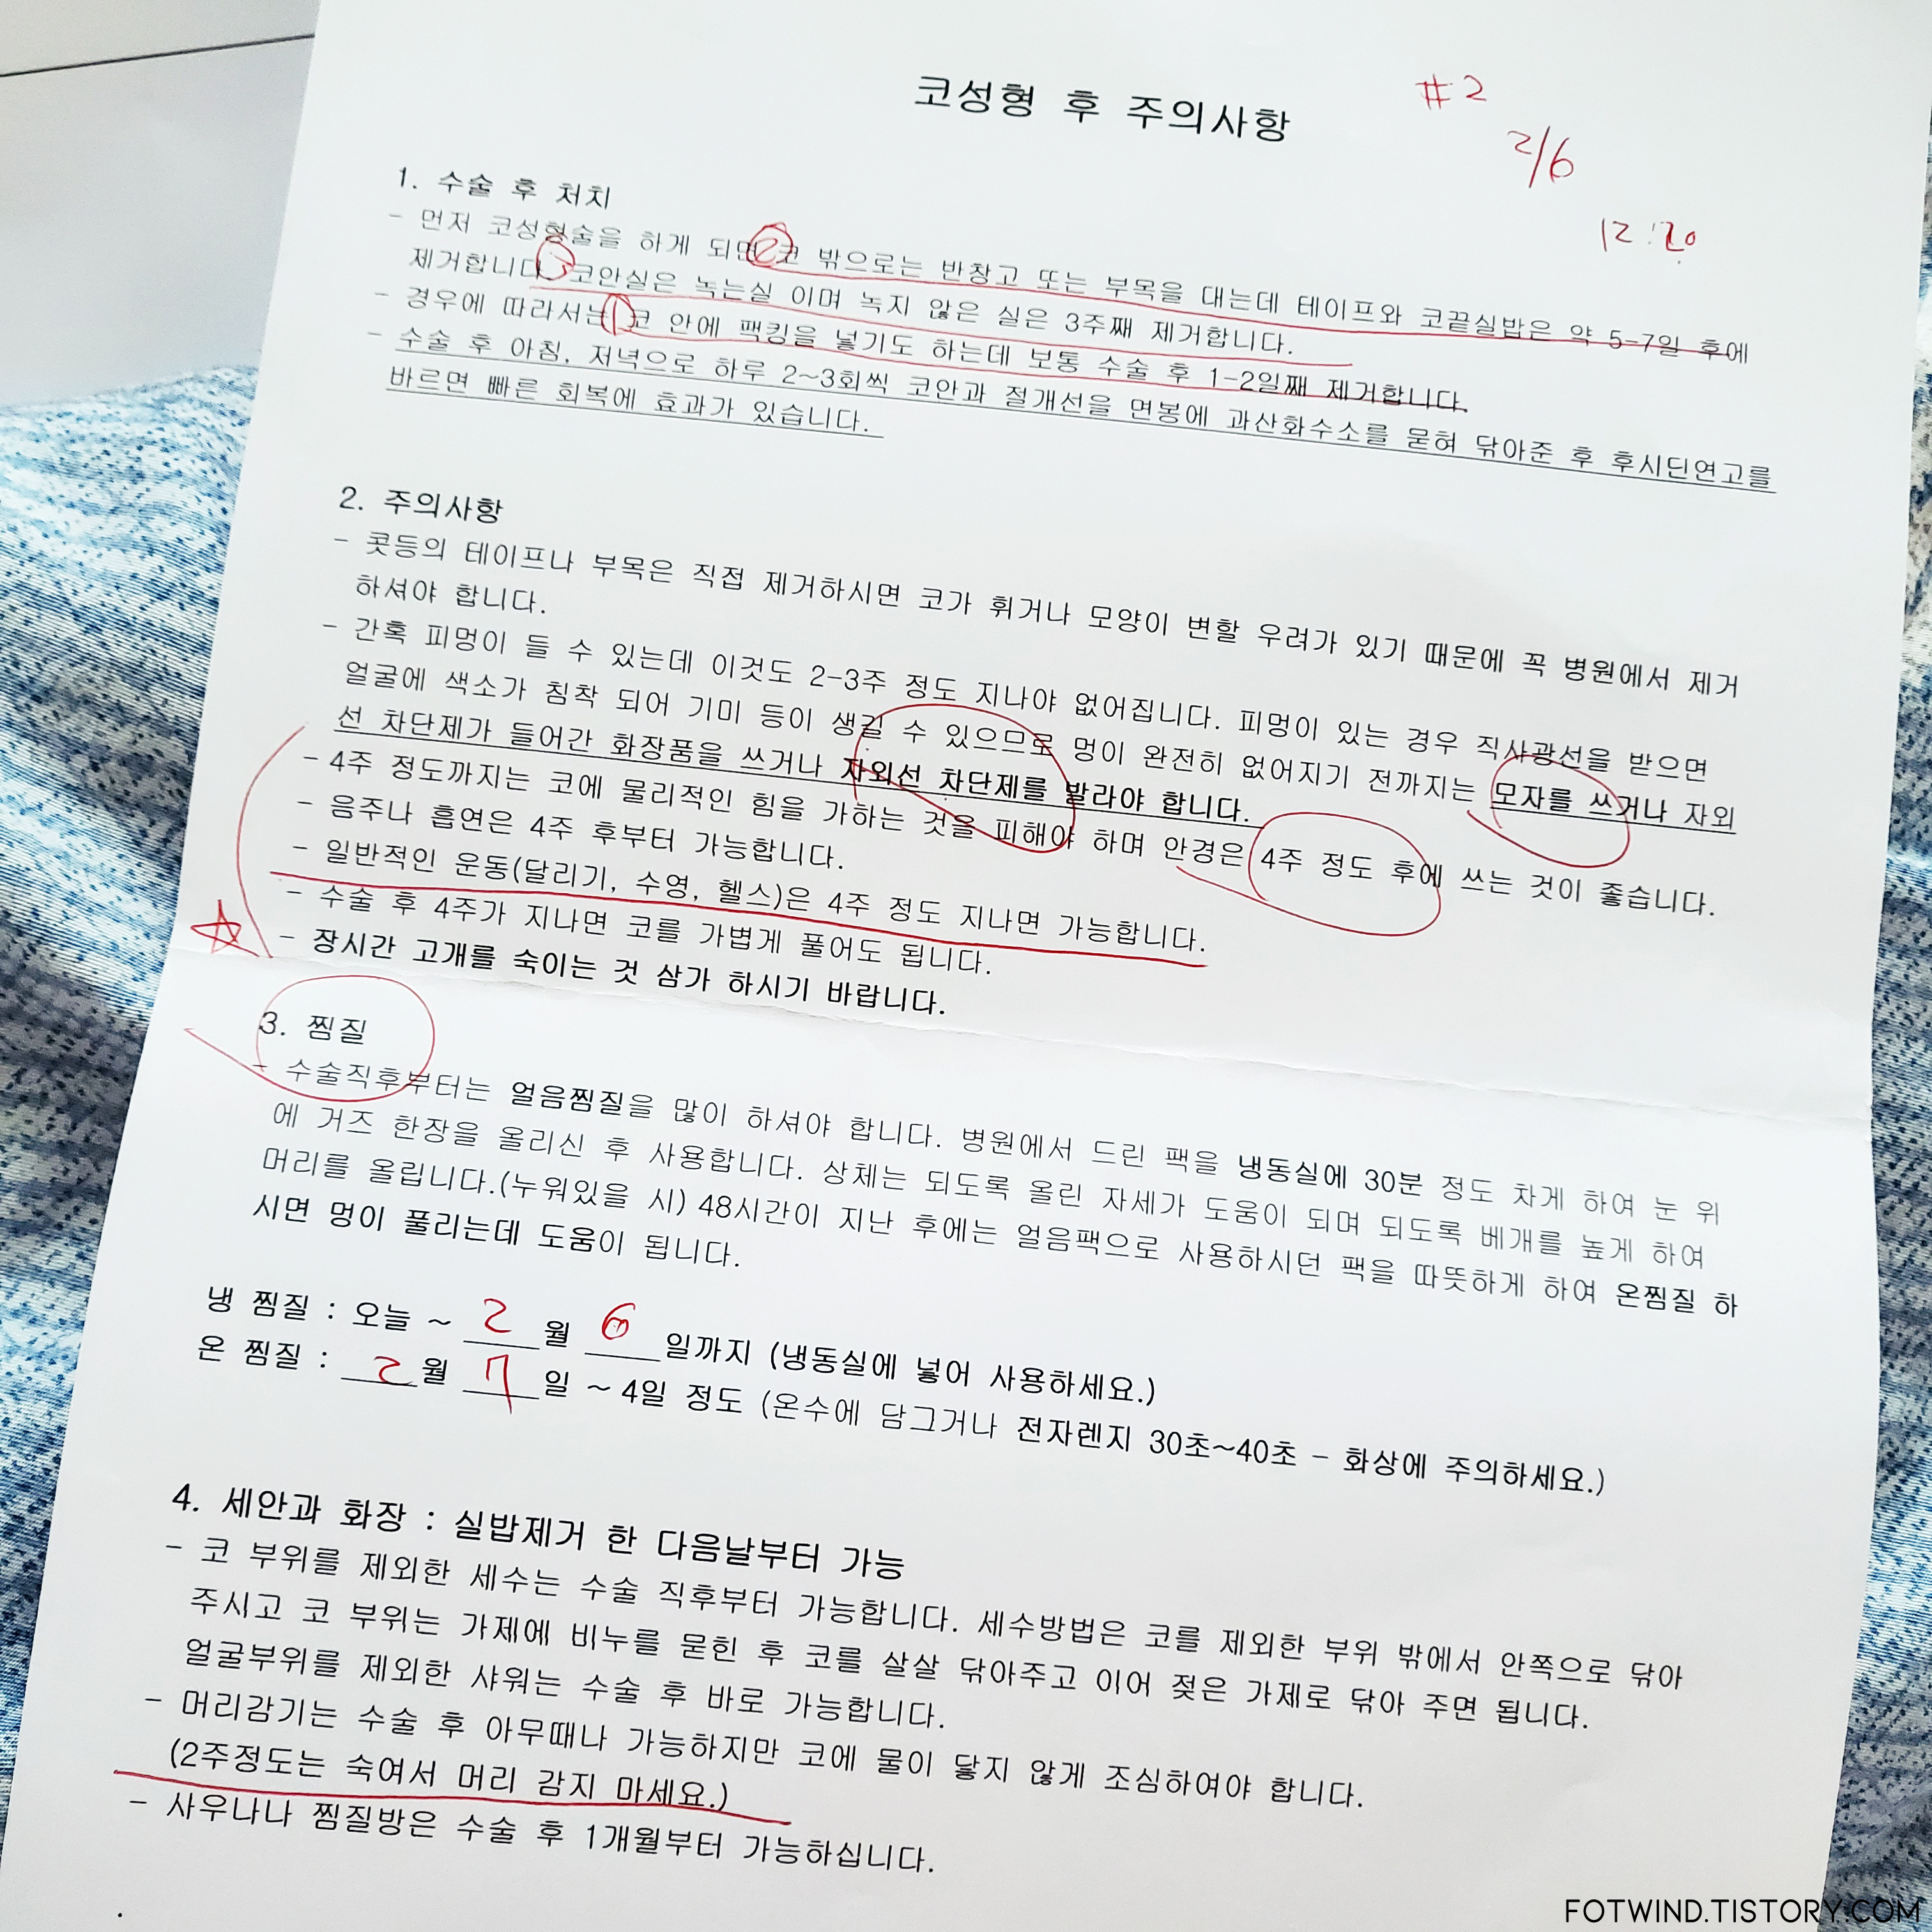 코성형 후 주의사항
#2
2/6
12:20
1. 수술 후 처치
- 먼저 코성형술을 하게 되면 ② 코 밖으로는 반창고 또는 부목을 대는데 테이프와 코끝실밥은 약 5-7일 후에
제거합니다. ③ 코안실은 녹는실 이며 녹지 않은 실은 3주째 제거합니다.
- 경우에 따라서는 ① 코 안에 팩킹을 넣기도 하는데 보통 수술 후 1-2일째 제거합니다.
- 수술 후 아침, 저녁으로 하루 2~3회씩 코안과 절개선을 면봉에 과산화수소를 묻혀 닦아준 후 후시딘연고를
바르면 빠른 회복에 효과가 있습니다.
2. 주의사항
- 콧등의 테이프나 부목은 직접 제거하시면 코가 휘거나 모양이 변할 우려가 있기 때문에 꼭 병원에서 제거
하셔야 합니다.
- 간혹 피멍이 들 수 있는데 이것도 2-3주 정도 지나야 없어집니다. 피멍이 있는 경우 직사광선을 받으면
얼굴에 색소가 침착 되어 기미 등이 생길 수 있으므로 멍이 완전히 없어지기 전까지는 모자를 쓰거나 자외
선 차단제가 들어간 화장품을 쓰거나 자외선 차단제를 발라야 합니다.
- 4주 정도까지는 코에 물리적인 힘을 가하는 것을 피해야 하며 안경은 4주 정도 후에 쓰는 것이 좋습니다.
- 음주나 흡연은 4주 후부터 가능합니다.
- 일반적인 운동(달리기, 수영, 헬스)은 4주 정도 지나면 가능합니다.
- 수술 후 4주가 지나면 코를 가볍게 풀어도 됩니다.
- 장시간 고개를 숙이는 것 삼가 하시기 바랍니다.
3. 찜질
- 수술직후부터는 얼음찜질을 많이 하셔야 합니다. 병원에서 드린 팩을 냉동실에 30분 정도 차게 하여 눈 위
에 거즈 한장을 올리신 후 사용합니다. 상체는 되도록 올린 자세가 도움이 되며 되도록 베개를 높게 하여
머리를 올립니다.(누워있을 시) 48시간이 지난 후에는 얼음팩으로 사용하시던 팩을 따뜻하게 하여 온찜질 하
시면 멍이 풀리는데 도움이 됩니다.
냉 찜질 : 오늘 ~ 2월 6일까지 (냉동실에 넣어 사용하세요.)
온 찜질 : 2월 7일 ~ 4일 정도 (온수에 담그거나 전자렌지 30초~40초 - 화상에 주의하세요.)
4. 세안과 화장 : 실밥제거 한 다음날부터 가능
- 코 부위를 제외한 세수는 수술 직후부터 가능합니다. 세수방법은 코를 제외한 부위 밖에서 안쪽으로 닦아
주시고 코 부위는 가제에 비누를 묻힌 후 코를 살살 닦아주고 이어 젖은 가제로 닦아 주면 됩니다.
얼굴부위를 제외한 샤워는 수술 후 바로 가능합니다.
- 머리감기는 수술 후 아무때나 가능하지만 코에 물이 닿지 않게 조심하여야 합니다.
(2주정도는 숙여서 머리 감지 마세요.)
- 사우나나 찜질방은 수술 후 1개월부터 가능하십니다.
FOTWIND.TISTORY.COM